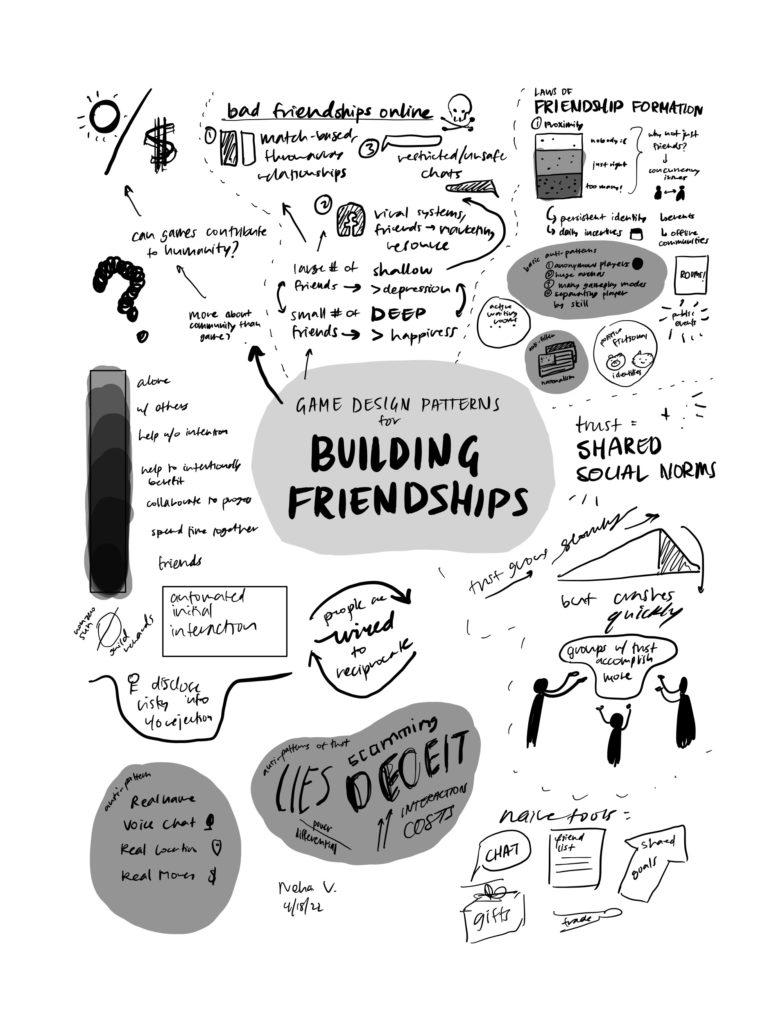 bad friendships online
① match-based,
throwaway
relationships
③
restricted/unsafe
chats
②
viral systems,
friends → marketing
resource
large # of shallow
friends → > depression
small # of DEEP
friends → > happiness
can games contribute
to humanity?
more about
community than
game?
LAWS OF
FRIENDSHIP FORMATION
① Proximity
nobody is
just right
too many!
why not just
friends?
concurrency
issues
↳ persistent identity
↳ daily incentives
events
↳ offline
communities
basic anti-patterns
① anonymous players
② huge arenas
③ many gameplay modes
④ separating player
by skill
ROOMS!
public
events
active
waiting
rooms
anti-pattern
nationalism
positive fictional
identities
GAME DESIGN PATTERNS
for
BUILDING
FRIENDSHIPS
alone
w/ others
help w/o intention
help to intentionally
benefit
collaborate to progress
spend time together
friends
trust =
SHARED
SOCIAL NORMS
trust grows slowly
but crashes
quickly
groups w/ trust
accomplish
more
nonzero
sum
guild
rewards
automated
initial
interaction
people are
wired
to
reciprocate
disclose
risky info
w/o rejection
anti-pattern
Real name
Voice Chat
Real Location
Real Money $
anti-patterns of that
LIES scamming
DECEIT
power
differential
INTERACTION
COSTS
Neha V.
4/18/22
naive tools =
CHAT
friend
list
shared
goals
gifts
trade